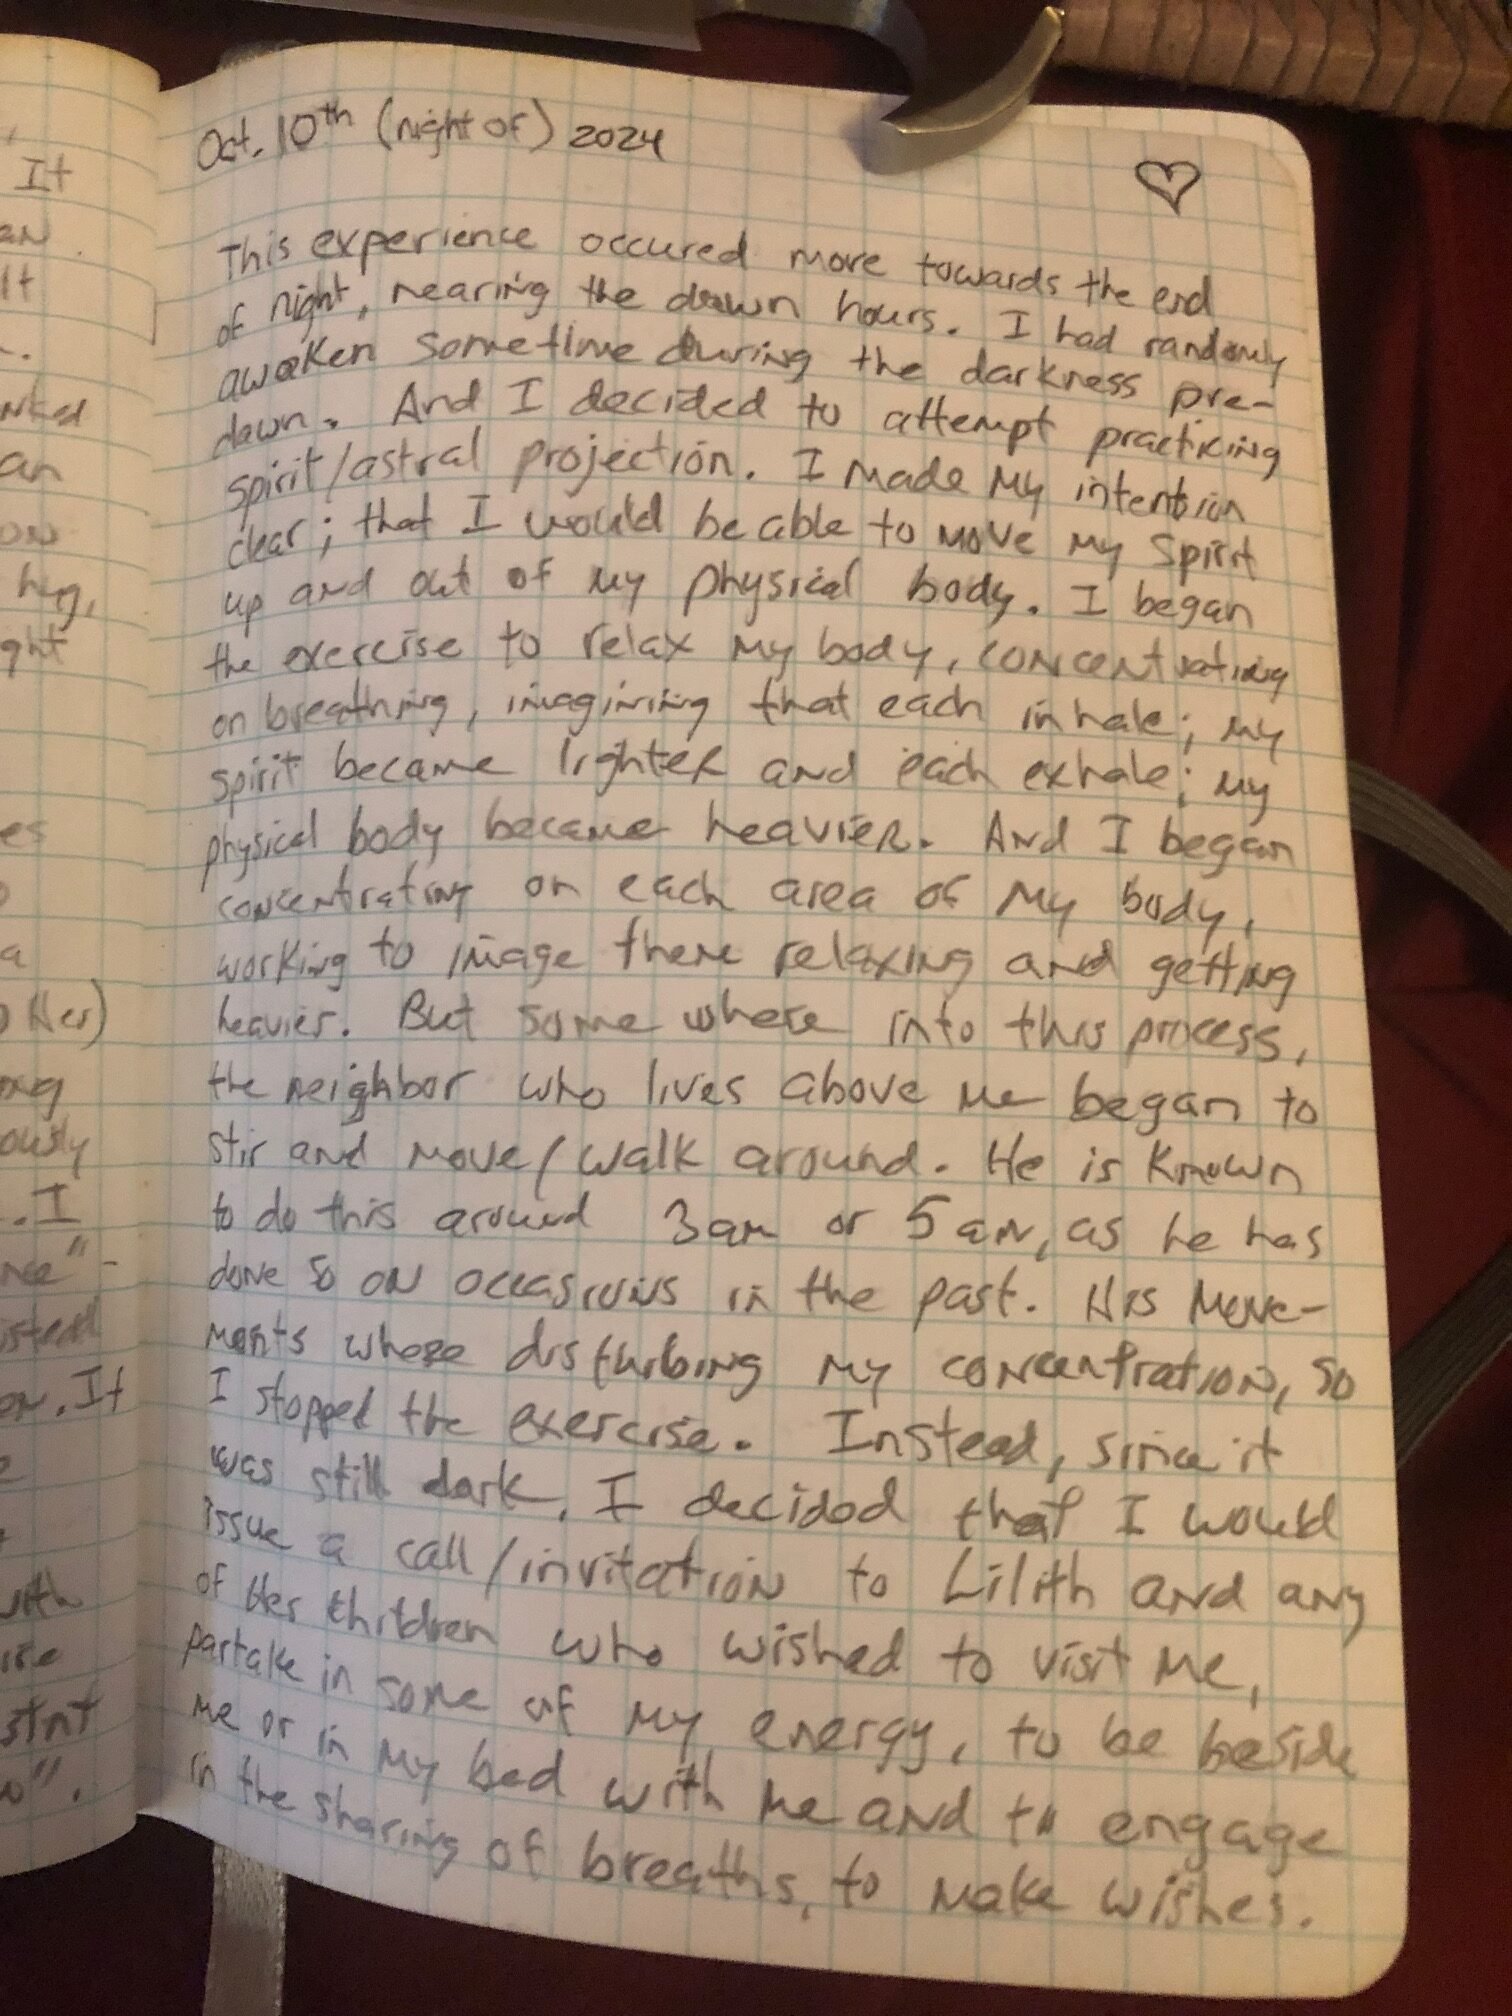 Oct. 10th (night of) 2024
This experience occured more towards the end
of night, nearing the dawn hours. I had randomly
awaken sometime during the darkness pre-
dawn. And I decided to attempt practicing
spirit/astral projection. I made my intention
clear; that I would be able to move my spirit
up and out of my physical body. I began
the exercise to relax my body, concentrating
on breathing, imagining that each inhale; my
spirit became lighter and each exhale; my
physical body became heavier. And I began
concentrating on each area of my body,
working to image there relaxing and getting
heavier. But some where into this process,
the neighbor who lives above me began to
stir and move/walk around. He is known
to do this around 3am or 5am, as he has
done so on occasions in the past. His move-
ments where disturbing my concentration, so
I stopped the exercise. Instead, since it
was still dark, I decided that I would
issue a call/invitation to Lilith and any
of Her children who wished to visit me,
partake in some of my energy, to be beside
me or in my bed with me and to engage
in the sharing of breaths, to make wishes.
It
an
It
an
hug,
ght
es
a
Her)
ously
. I
. It
with
".